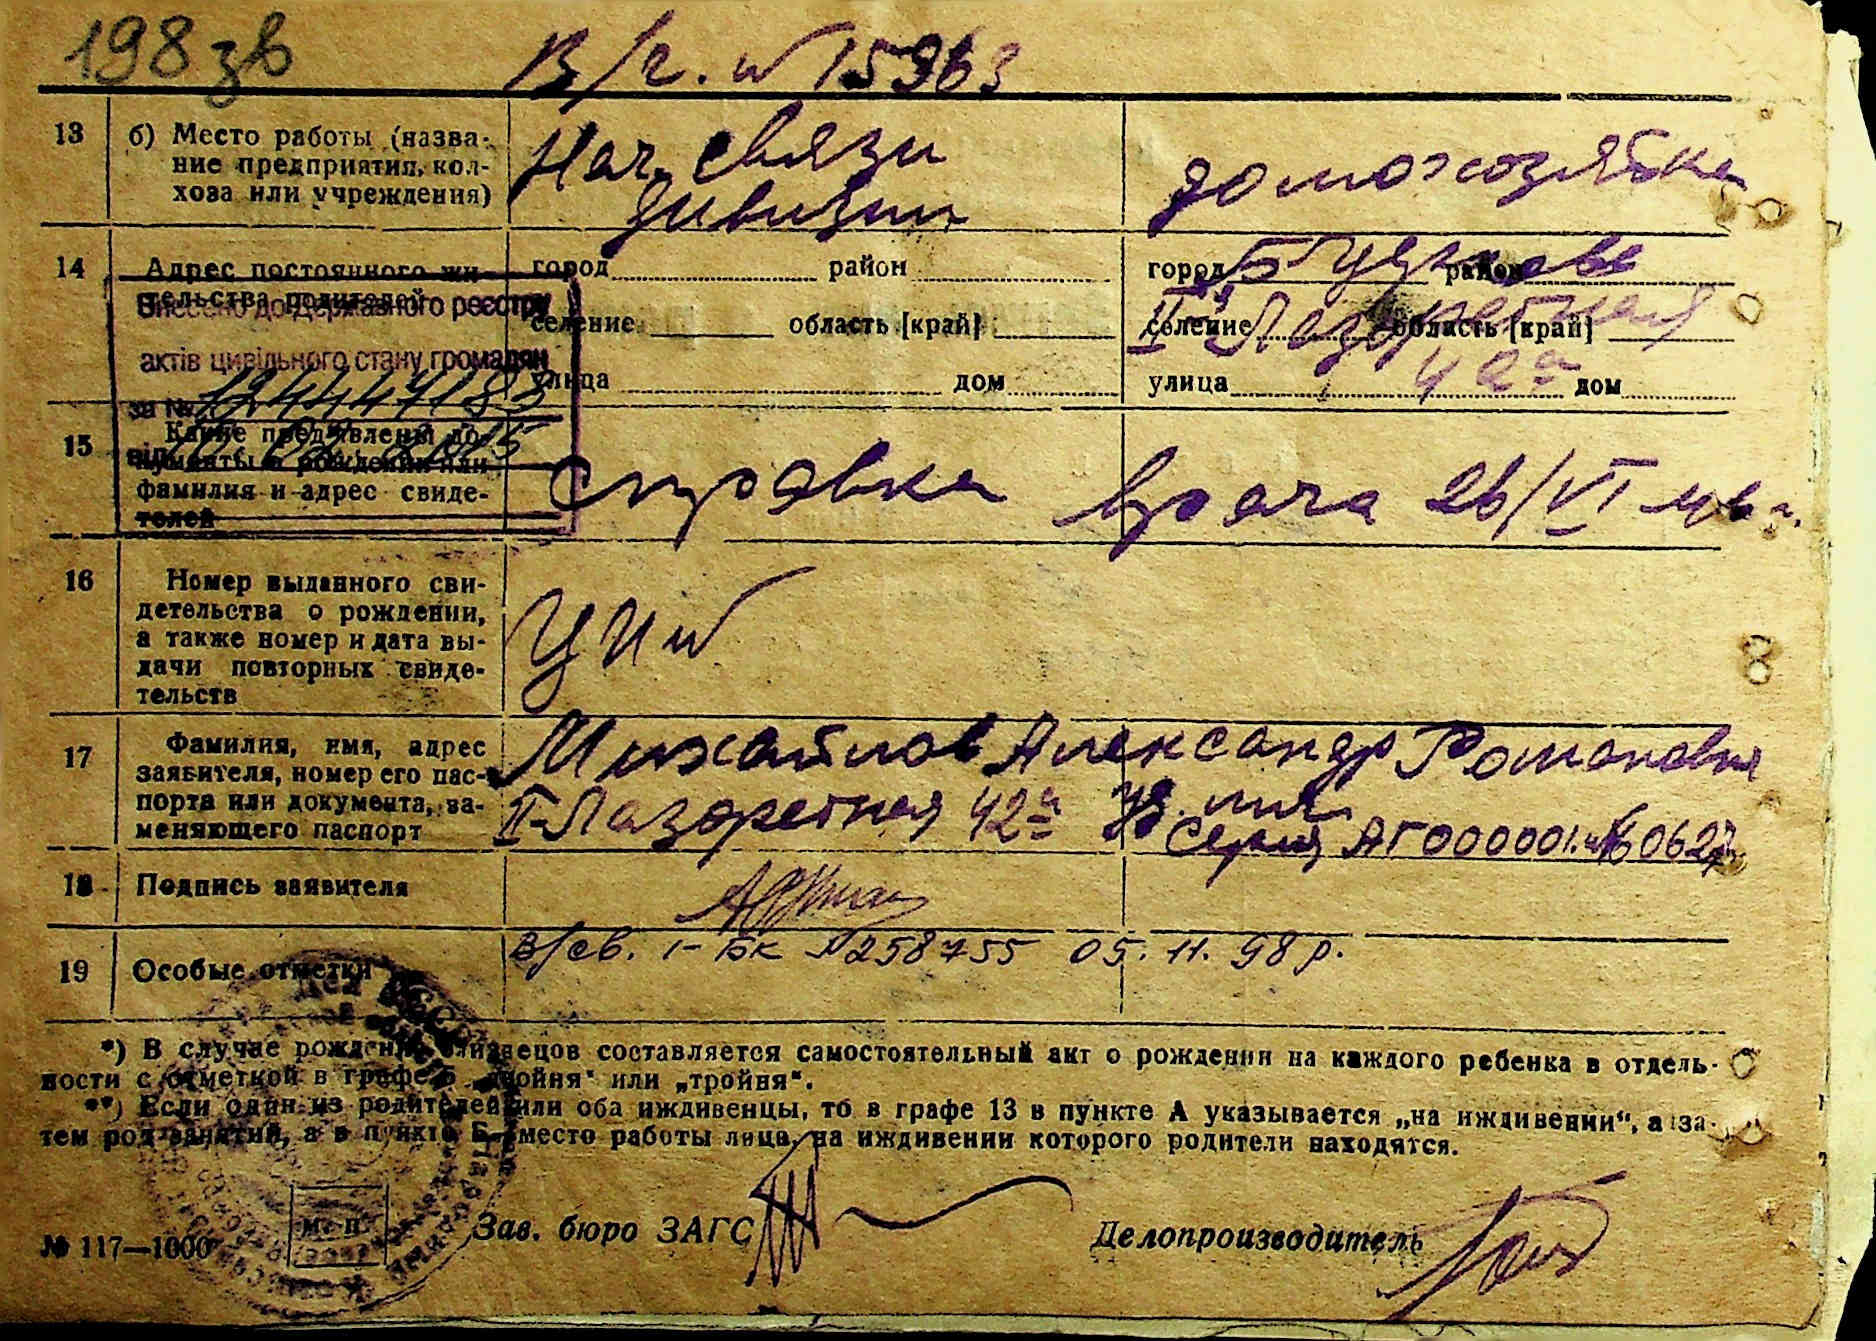 198 зв
В/ч. № 15963
13
б) Место работы (назва-
ние предприятия, кол-
хоза или учреждения)
Нач. связи
дивизии
домохозяйка
14
Адрес постоянного жи-
тельства родителей
город район
селение область [край]
улица дом
город район
селение область [край]
улица дом
II-я Лазаретная
42а
Внесено до Державного реєстру
актів цивільного стану громадян
за №
від
15
Какие предъявлены до-
кументы о рождении или
фамилия и адрес свиде-
телей
Справка врача 26/VI
16
Номер выданного сви-
детельства о рождении,
а также номер и дата вы-
дачи повторных свиде-
тельств
17
Фамилия, имя, адрес
заявителя, номер его пас-
порта или документа, за-
меняющего паспорт
Михайлов Александр Романович
II-Лазаретная 42а
Серия АГ000001 №
18
Подпись заявителя
19
Особые отметки
в/св. I-БК №258755 05. 11. 98 р.
*) В случае рождения близнецов составляется самостоятельный акт о рождении на каждого ребенка в отдель-
ности с отметкой в графе 5 „двойня“ или „тройня“.
**) Если один из родителей или оба иждивенцы, то в графе 13 в пункте А указывается „на иждивении“, а за-
тем род занятий, а в пункте Б—место работы лица, на иждивении которого родители находятся.
М. П.
Зав. бюро ЗАГС
Делопроизводитель
№ 117—1000